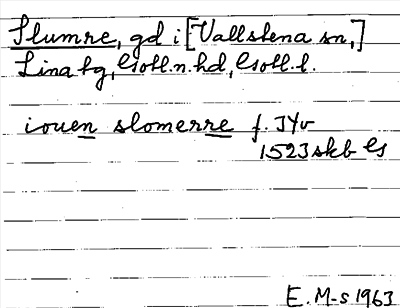 Slumre, gd i [Vallstena sn,]
Lina tg, Gotl. n. hd, Gotl. l.
iouen slomerre f. 74v
1523 skb Gs
E. M-s 1963